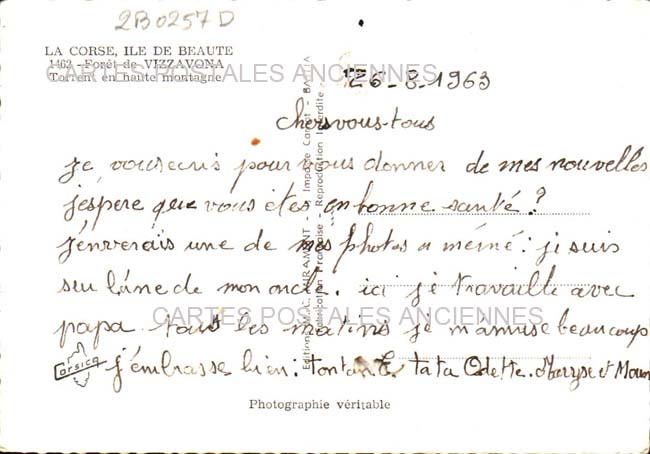 2B0257D
LA CORSE, ILE DE BEAUTE
1463 - Forêt de VIZZAVONA
Torrent en haute montagne
CARTES POSTALES ANCIENNES
26-8-1963
chers vous-tous
je vous ecris pour vous donner de mes nouvelles
j'espere que vous êtes en bonne santé?
j'enverais une de mes photos a mémé: je suis
seu l'âne de mon oncle. ici je travaille avec
CARTES POSTALES ANCIENNES
papa tous les matins je m'amuse beaucoup
j'embrasse bien: tonton E. tata Odette. Maryse et
Corsica
Photographie véritable
Reproduction Interdite